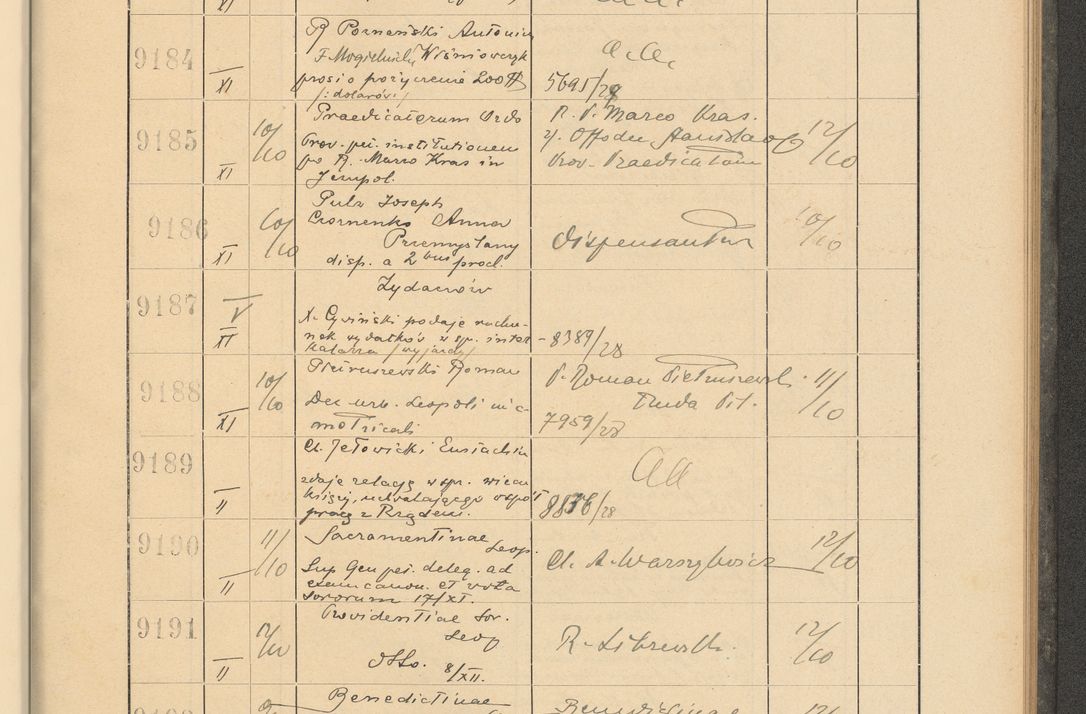 9184
XI
R Poznański Antonin
F. Mogielnicki, Wiśniowczyk
prosi o pożyczenie 200 #
/: dolarów: /
a. a.
5695/28
9185
XI
10/10
Praedicatorum Ordo
Prov. pei. institutionem
po R. Marco Kras in
Jezupol.
R. P. Marco Kras.
Prov. Praedicatorum
12/10
9186
XI
10/10
Pulz Joseph
Czornenko Anna
Przemyślany
disp. a 2bus procl.
Dispensantur
10/10
9187
V
XI
Żydaczów
podaje rachu-
nek wydatków w sp. inter
kalarza / wyjazdy /
8389/28
9188
XI
10/10
Pietruszewski Roman
Dec. urb. Leopoli in c-
matricali
P. Roman Pietruszewski.
7959/28
11/10
9189
II
Cl. Jełowicki Eustachiu
zdaje relację w spr. wiecu
księży, uchwalającego współ
pracę z Rządem.
aa
/28
9190
II
11/10
Sacramentinae
Leop.
Sup. Gen pei. deleg. ad
exam canon. et vota
sororum 17/XI.
Cl. A. Warszylewicz
12/10
9191
II
12/10
Providentiae Sor.
Leop
8/XII.
12/10
Benedictinae
Benedictinae